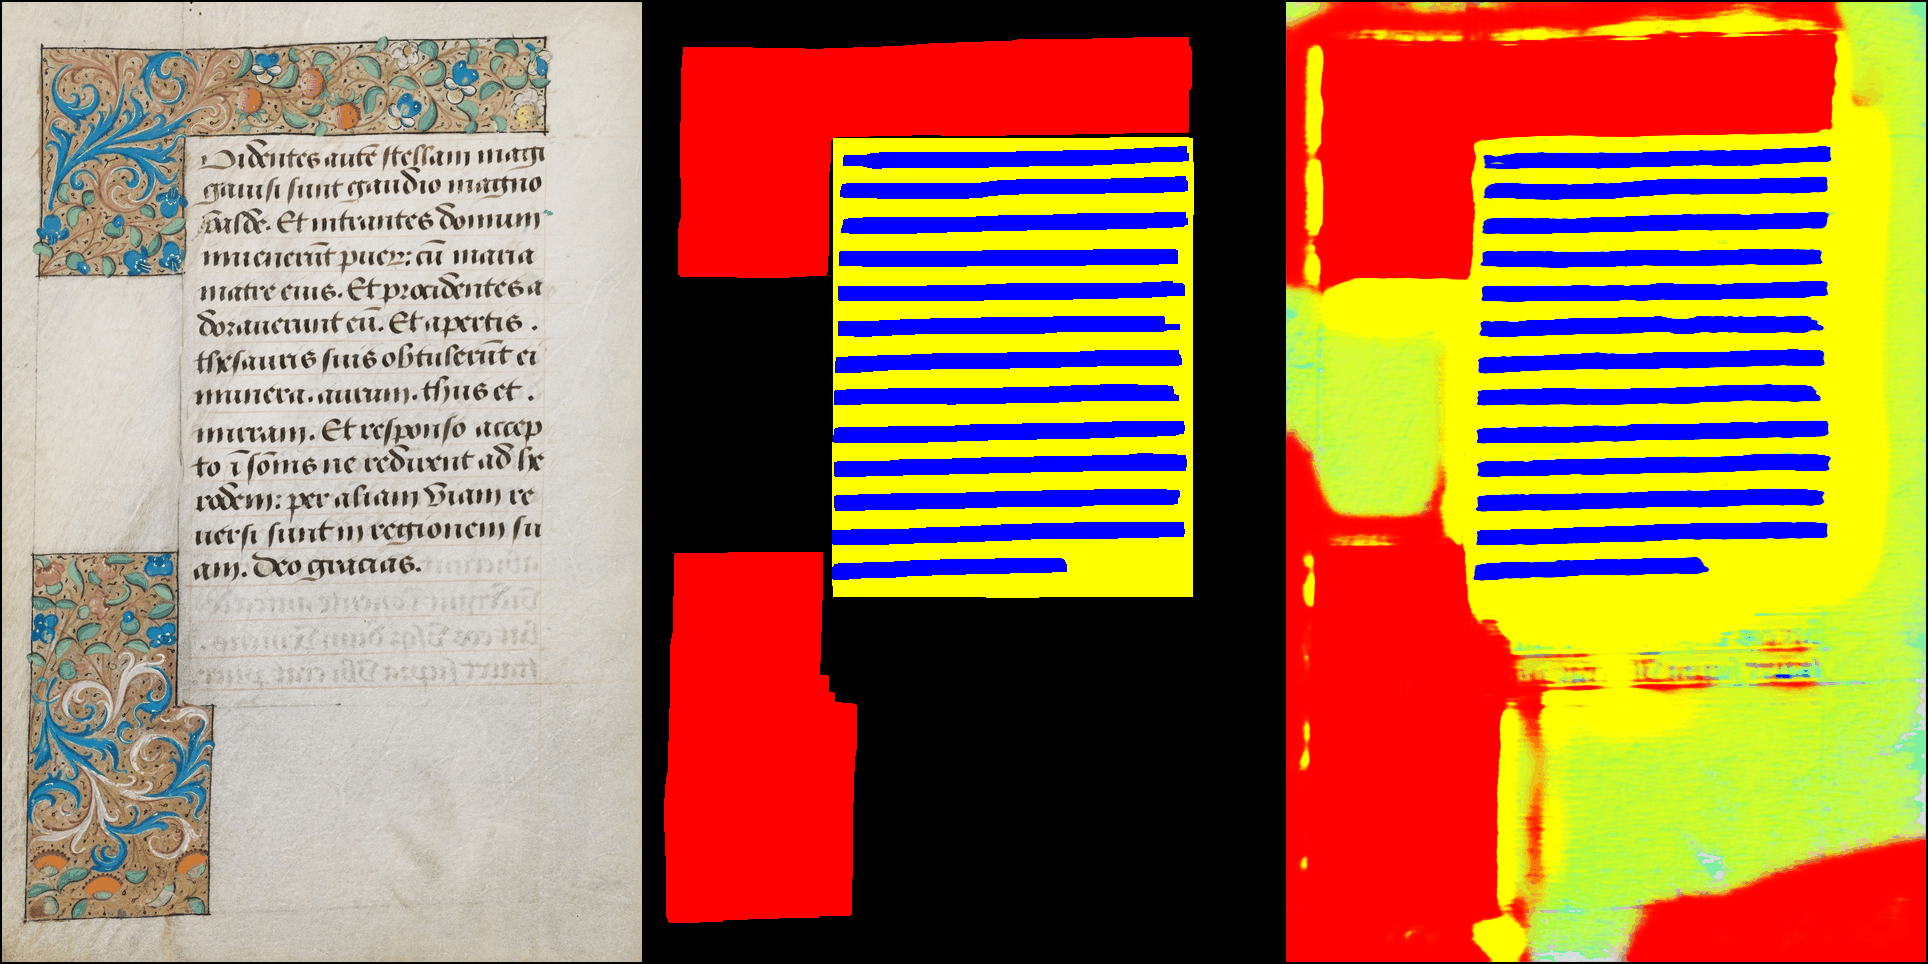 Uidentes autē stellam magi
gauisi sunt gaudio magno
valde. Et intrantes domum
inuenerūt puerꝝ: cū maria
matre eius. Et procidentes a
dorauerunt eū. Et apertis .
thesauris suis obtulerūt ei
munera. aurum. thus et .
mirram. Et responso accep
to ī somis ne redirent ad he
rodem: per aliam viam re
uersi sunt in regionem su
am. Deo gracias.